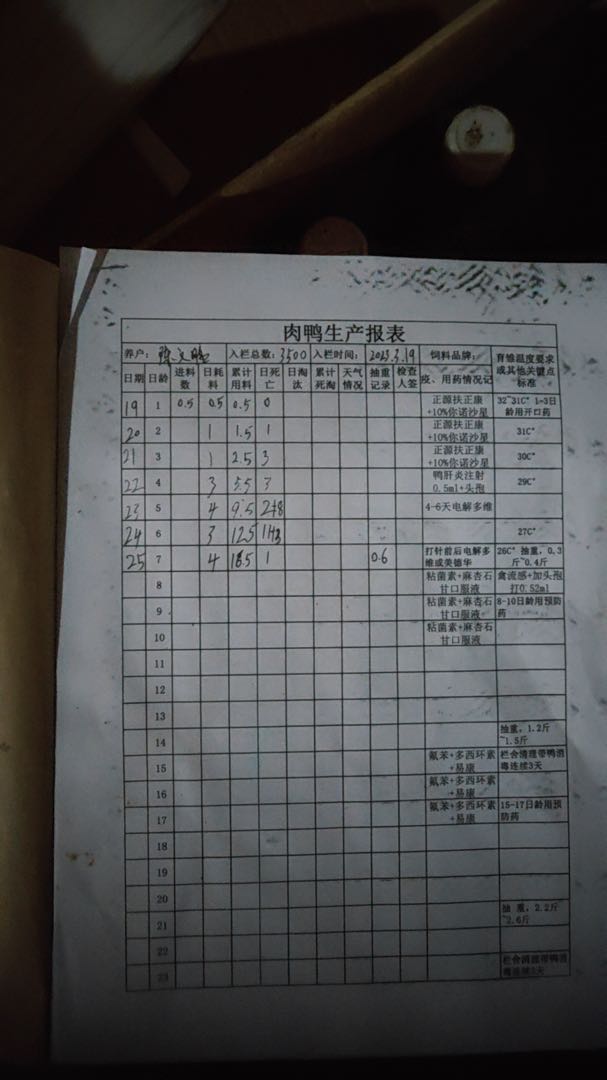 肉鸭生产报表
养户： 入栏总数：3500 入栏时间：2023.3.19 饲料品牌： 育雏温度要求或其他关键点标准
日期 日龄 进料数 日耗料 累计用料 日死亡 日淘汰 累计死淘 天气情况 抽重记录 检查人签 疫、用药情况记
19 1 0.5 0.5 0.5 0 正源扶正康+10%你诺沙星 32~31C° 1-3日龄用开口药
20 2 1 1.5 1 正源扶正康+10%你诺沙星 31C°
21 3 1 2.5 3 正源扶正康+10%你诺沙星 30C°
22 4 3 5.5 3 鸭肝炎注射0.5ml+头孢 29C°
23 5 4 9.5 2+8 4-6天电解多维
24 6 3 12.5 27C°
25 7 4 1 0.6 打针前后电解多维或美德华 26C° 抽重，0.3斤~0.4斤
8 粘菌素+麻杏石甘口服液 禽流感+加头孢打0.52ml
9 粘菌素+麻杏石甘口服液 8-10日龄用预防药
10 粘菌素+麻杏石甘口服液
11
12
13
14 抽重，1.2斤~1.5斤
15 氟苯+多西环素+易康 栏舍清理带鸭消毒连续3天
16 氟苯+多西环素+易康
17 氟苯+多西环素+易康 15-17日龄用预防药
18
19
20
21 抽 重，2.2斤~2.6斤
22
23 栏舍清理带鸭消毒连续3天